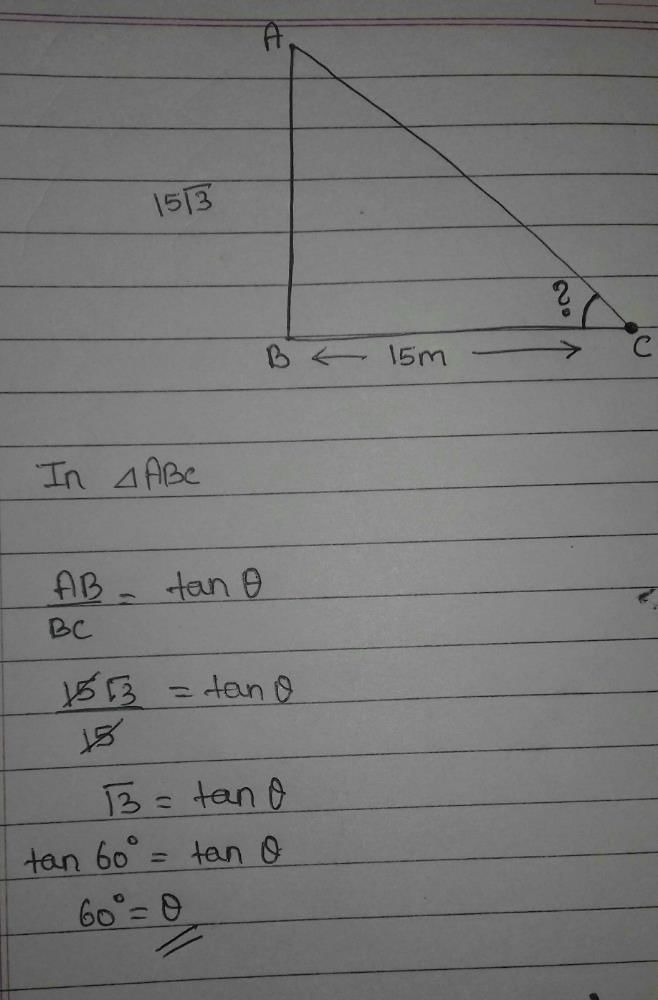 A
15√3
?
B ← 15m → C
In △ABC
AB/BC = tan θ
15√3/15 = tan θ
√3 = tan θ
tan 60° = tan θ
60° = θ